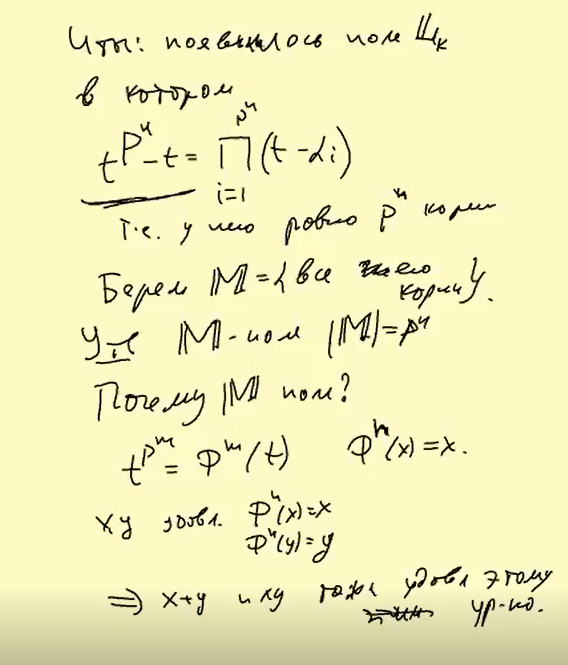 Итог: появилось поле 𝕃ₖ
в котором
t^{pⁿ} - t = ∏_{i=1}^{pⁿ} (t - αᵢ)
т.е. у него ровно pⁿ корн
Берем 𝕄 = {все его
корни}.
Утв 𝕄 - поле |𝕄| = pⁿ
Почему 𝕄 поле?
t^{pᵐ} = Φᵐ(t) Φⁿ(x) = x.
x y удовл. Φⁿ(x) = x
Φⁿ(y) = y
⇒ x+y и xy тоже удовл этому
ур-ю.